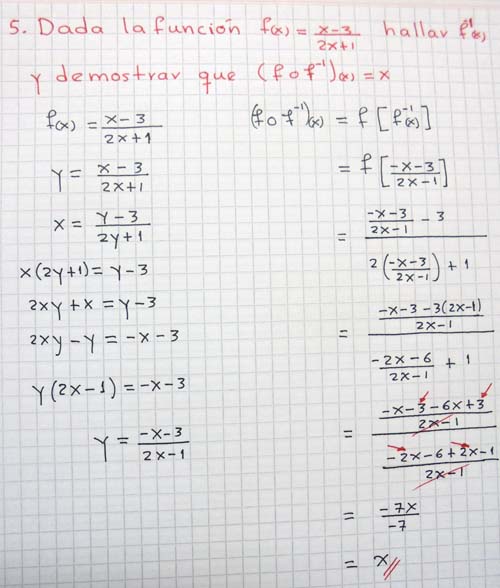 5. Dada la función f(x) = x-3/2x+1 hallar f⁻¹(x)
y demostrar que (f o f⁻¹)(x) = x
f(x) = x-3/2x+1
y = x-3/2x+1
x = y-3/2y+1
x(2y+1) = y-3
2xy+x = y-3
2xy-y = -x-3
y(2x-1) = -x-3
y = -x-3/2x-1
(f o f⁻¹)(x) = f[f⁻¹(x)]
= f[-x-3/2x-1]
= (-x-3/2x-1 - 3)/(2(-x-3/2x-1) + 1)
= (-x-3-3(2x-1)/2x-1)/(-2x-6/2x-1 + 1)
= (-x-3-6x+3/2x-1)/(-2x-6+2x-1/2x-1)
= -7x/-7
= x//